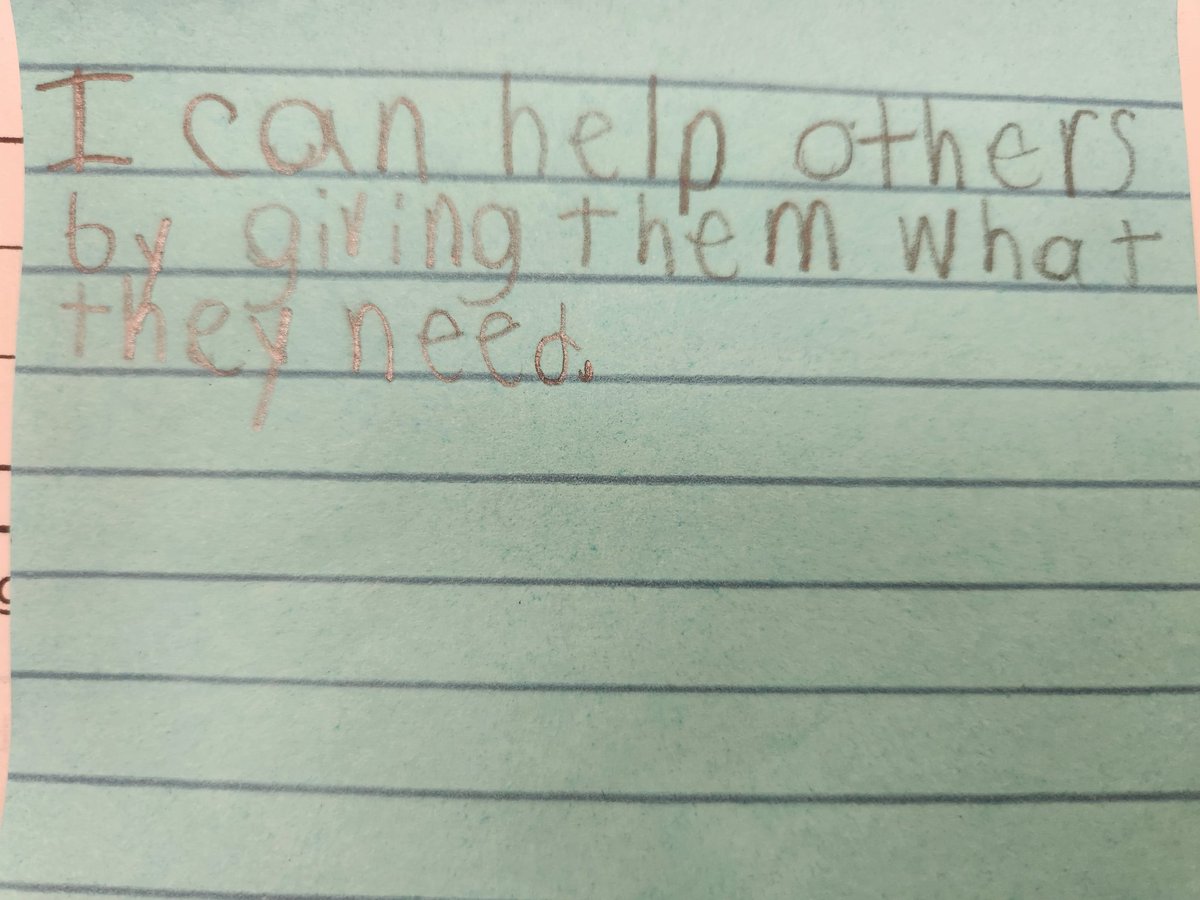 I can help others
by giving them what
they need.